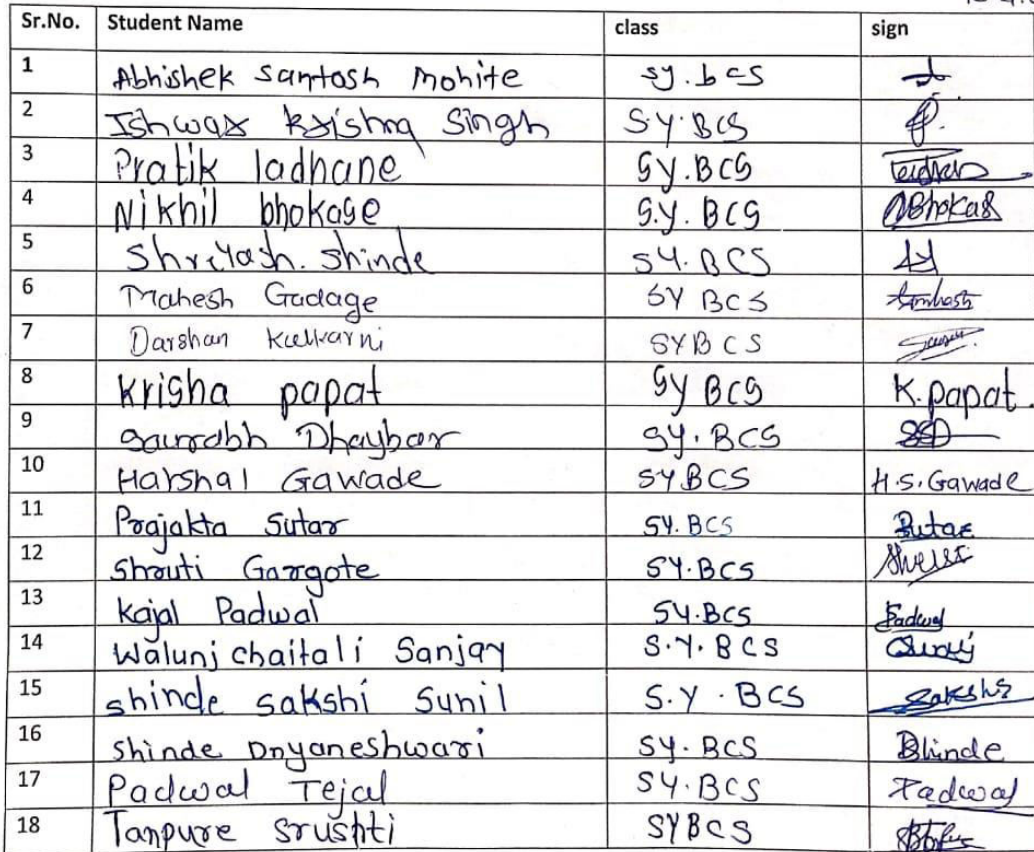 Sr.No. Student Name class sign
1 Abhishek Santosh Mohite sy.bcs
2 Ishwar krishna Singh S.Y.BCS
3 Pratik ladhane SY.BCS
4 Nikhil bhokase S.Y. BCS
5 Shreyash. Shinde SY.BCS
6 Mahesh Gadage SY BCS
7 Darshan Kulkarni SYBCS
8 krisha papat SY BCS K.papat.
9 Saurabh Dhaybar SY.BCS
10 Harshal Gawade SYBCS H.S.Gawade
11 Prajakta Sutar SY.BCS Sutar
12 Shruti Gargote SY.BCS
13 Kajal Padwal SY.BCS Padwal
14 Walunj chaitali Sanjay S.Y.BCS
15 shinde sakshi Sunil S.Y.BCS Sakshi
16 Shinde Dnyaneshwari SY.BCS
17 Padwal Tejal SY.BCS Padwal
18 Tanpure Srushti SYBCS